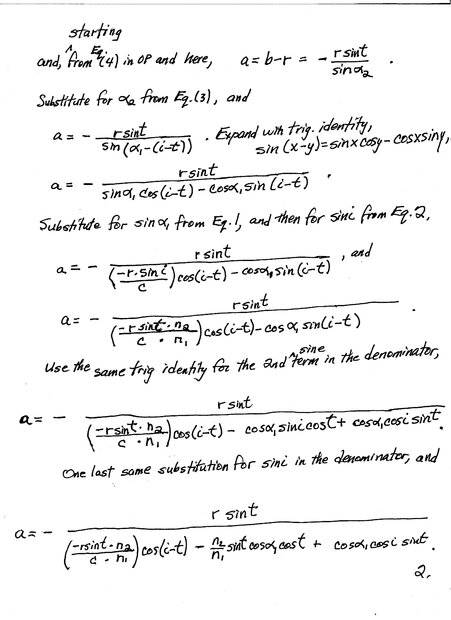 starting
and, ^ from Eq. (4) in OP and here, a = b-r = - r sint / sinα₂ .
Substitute for α₂ from Eq.(3), and
a = - r sint / sin(α₁-(i-t)) . Expand with trig. identity, sin(x-y)=sinxcosy-cosxsiny,
a = - r sint / sinα₁ cos(i-t) - cosα₁ sin(i-t) .
Substitute for sinα₁ from Eq.1, and then for sini from Eq.2,
a = - r sint / (-r·sini / c) cos(i-t) - cosα₁ sin(i-t) , and
a = - r sint / (-r sint·n₂ / c·n₁) cos(i-t) - cosα₁ sin(i-t) .
Use the same trig identity for the 2nd ^ sine term in the denominator,
a = - r sint / (-r sint·n₂ / c·n₁) cos(i-t) - cosα₁ sini cost + cosα₁ cosi sint .
One last same substitution for sini in the denominator, and
a = - r sint / (-r sint·n₂ / c·n₁) cos(i-t) - n₂/n₁ sint cosα₁ cost + cosα₁ cosi sint .
2.